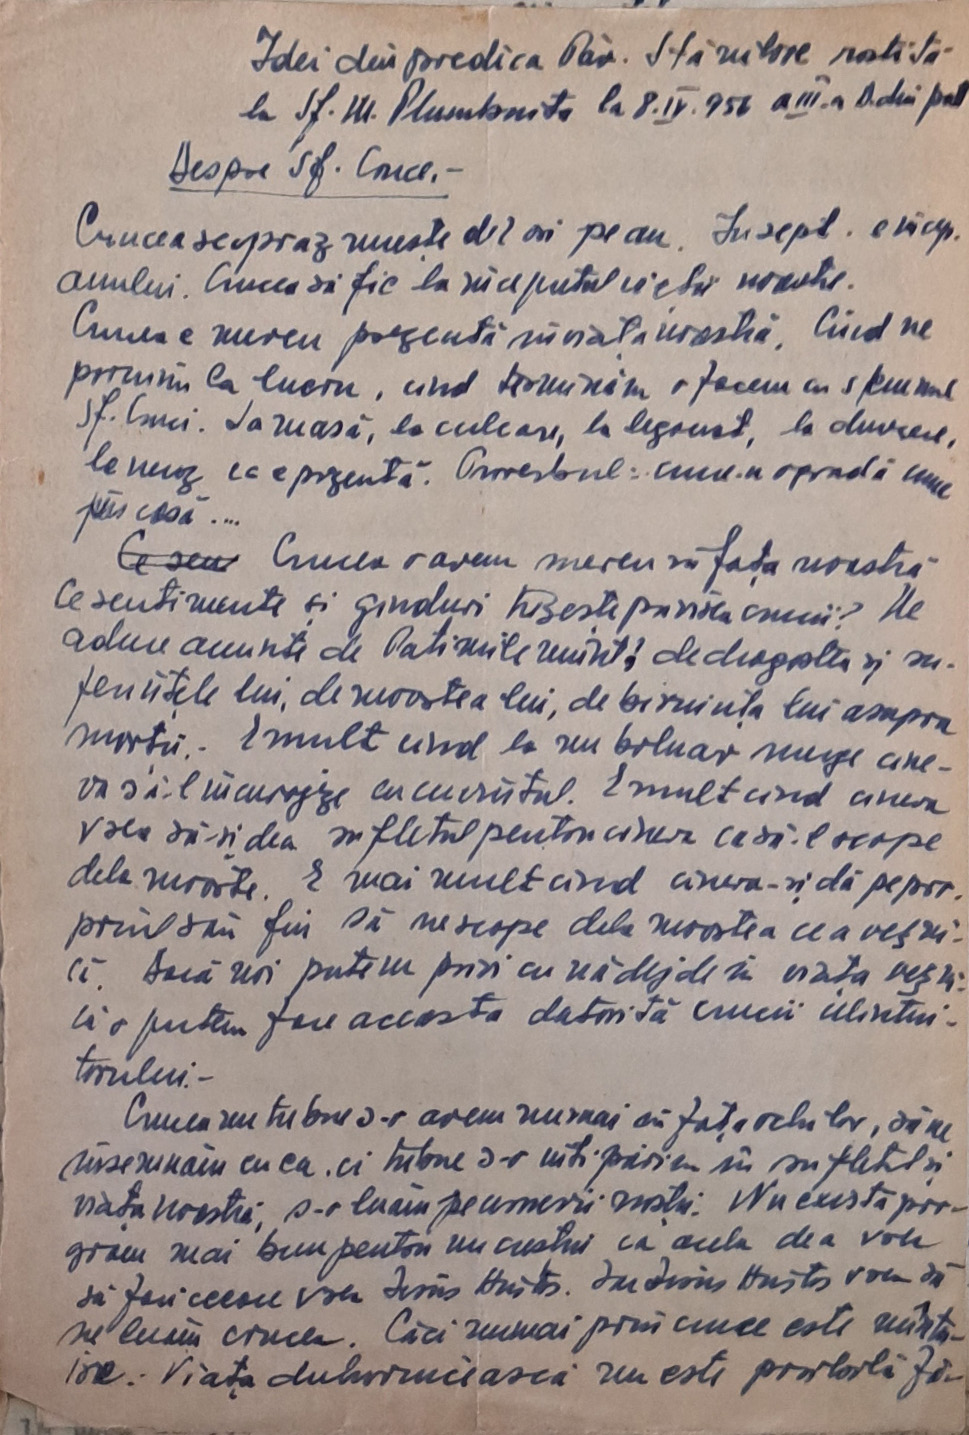 Idei din predica Păr. Stănilore rostită
la Sf. M. Plumbuita la 8.IV.956 a III.a D. din post
Despre Sf. Cruce.-
Crucea se prăznuește de 2 ori pe an. In sept. e încep.
anului. Crucea să fie la începutul vieții noastre.
Crucea e mereu prezentă în viața noastră. Cînd ne
pornim la lucru, cînd terminăm o facem cu semnul
Sf. Cruci. La masă, la culcare, la legănat, la durere,
la necaz ea e prezentă. Proverbul: cruce-n ogradă cruce
prin casă....
Ce sen Crucea o avem mereu în fața noastră
Ce sentimente și gînduri trezește privirea crucii? Ne
aduce aminte de Patimile Mînt. de dragostea și su-
ferințele lui, de moartea lui, de biruința lui asupra
morții.- E mult cînd la un bolnav merge cine-
va să-l încurajeze cu cuvîntul. E mult cînd cineva
vrea să-și dea sufletul pentru cineva ca să-l scape
dela moarte. E mai mult cînd cineva-și dă pe pro-
priul său fiu să ne scape dela moartea cea veșni-
că. Dacă noi putem privi cu nădejde în viața veșni-
că o putem face aceasta datorită crucii Mîntui-
torului.-
Crucea nu trebue s-o avem numai în fața ochilor, să ne
însemnăm cu ea, ci trebue s-o întipărim în sufletul și
viața noastră, s-o luăm pe umerii noștri. Nu există pro-
gram mai bun pentru un creștin ca acela de a vrea
să faci ceeace vrea Iisus Hristos. Iar Iisus Hristos vrea să
ne luăm crucea. Căci numai prin cruce este mîntu-
ire.- Viața duhovnicească nu este posibilă fă-